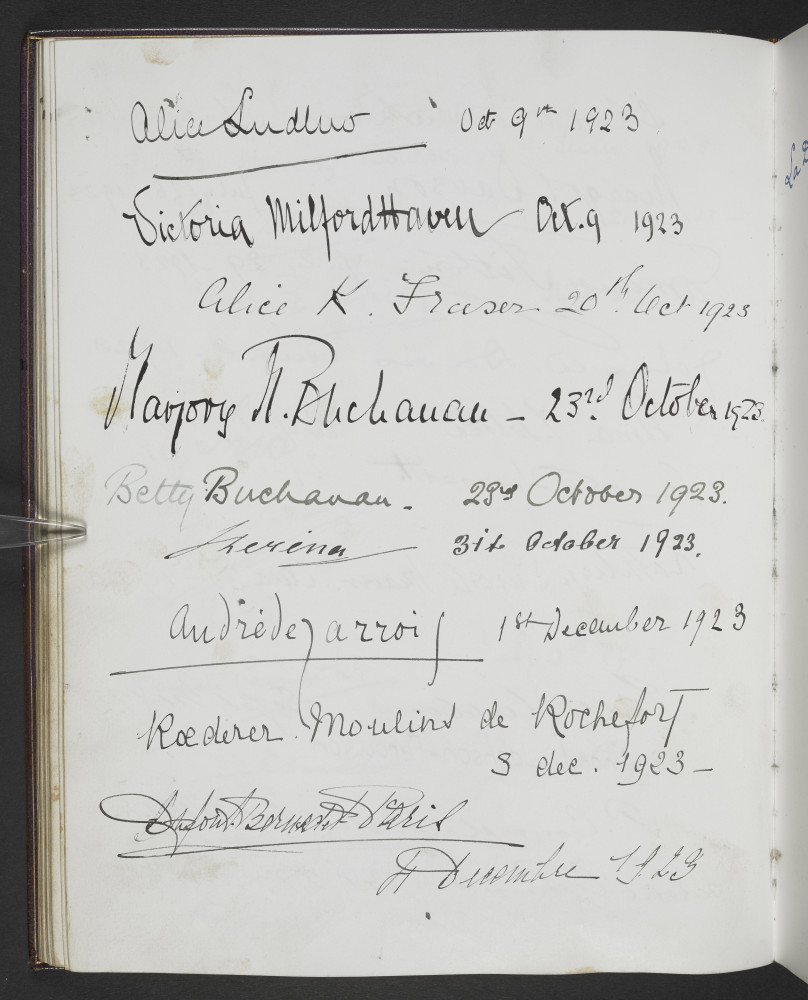 Alice Ludlow Oct 9th 1923
Victoria Milford Haven Oct. 9 1923
Alice K. Fraser 20th Oct 1923
Marjory N. Buchanan – 23rd October 1923
Betty Buchanan. 23rd October 1923.
31st October 1923.
André de 1st December 1923
Rœderer Moulins de Rochefort
3 dec. 1923 –
Paris
4 Decembre 1923